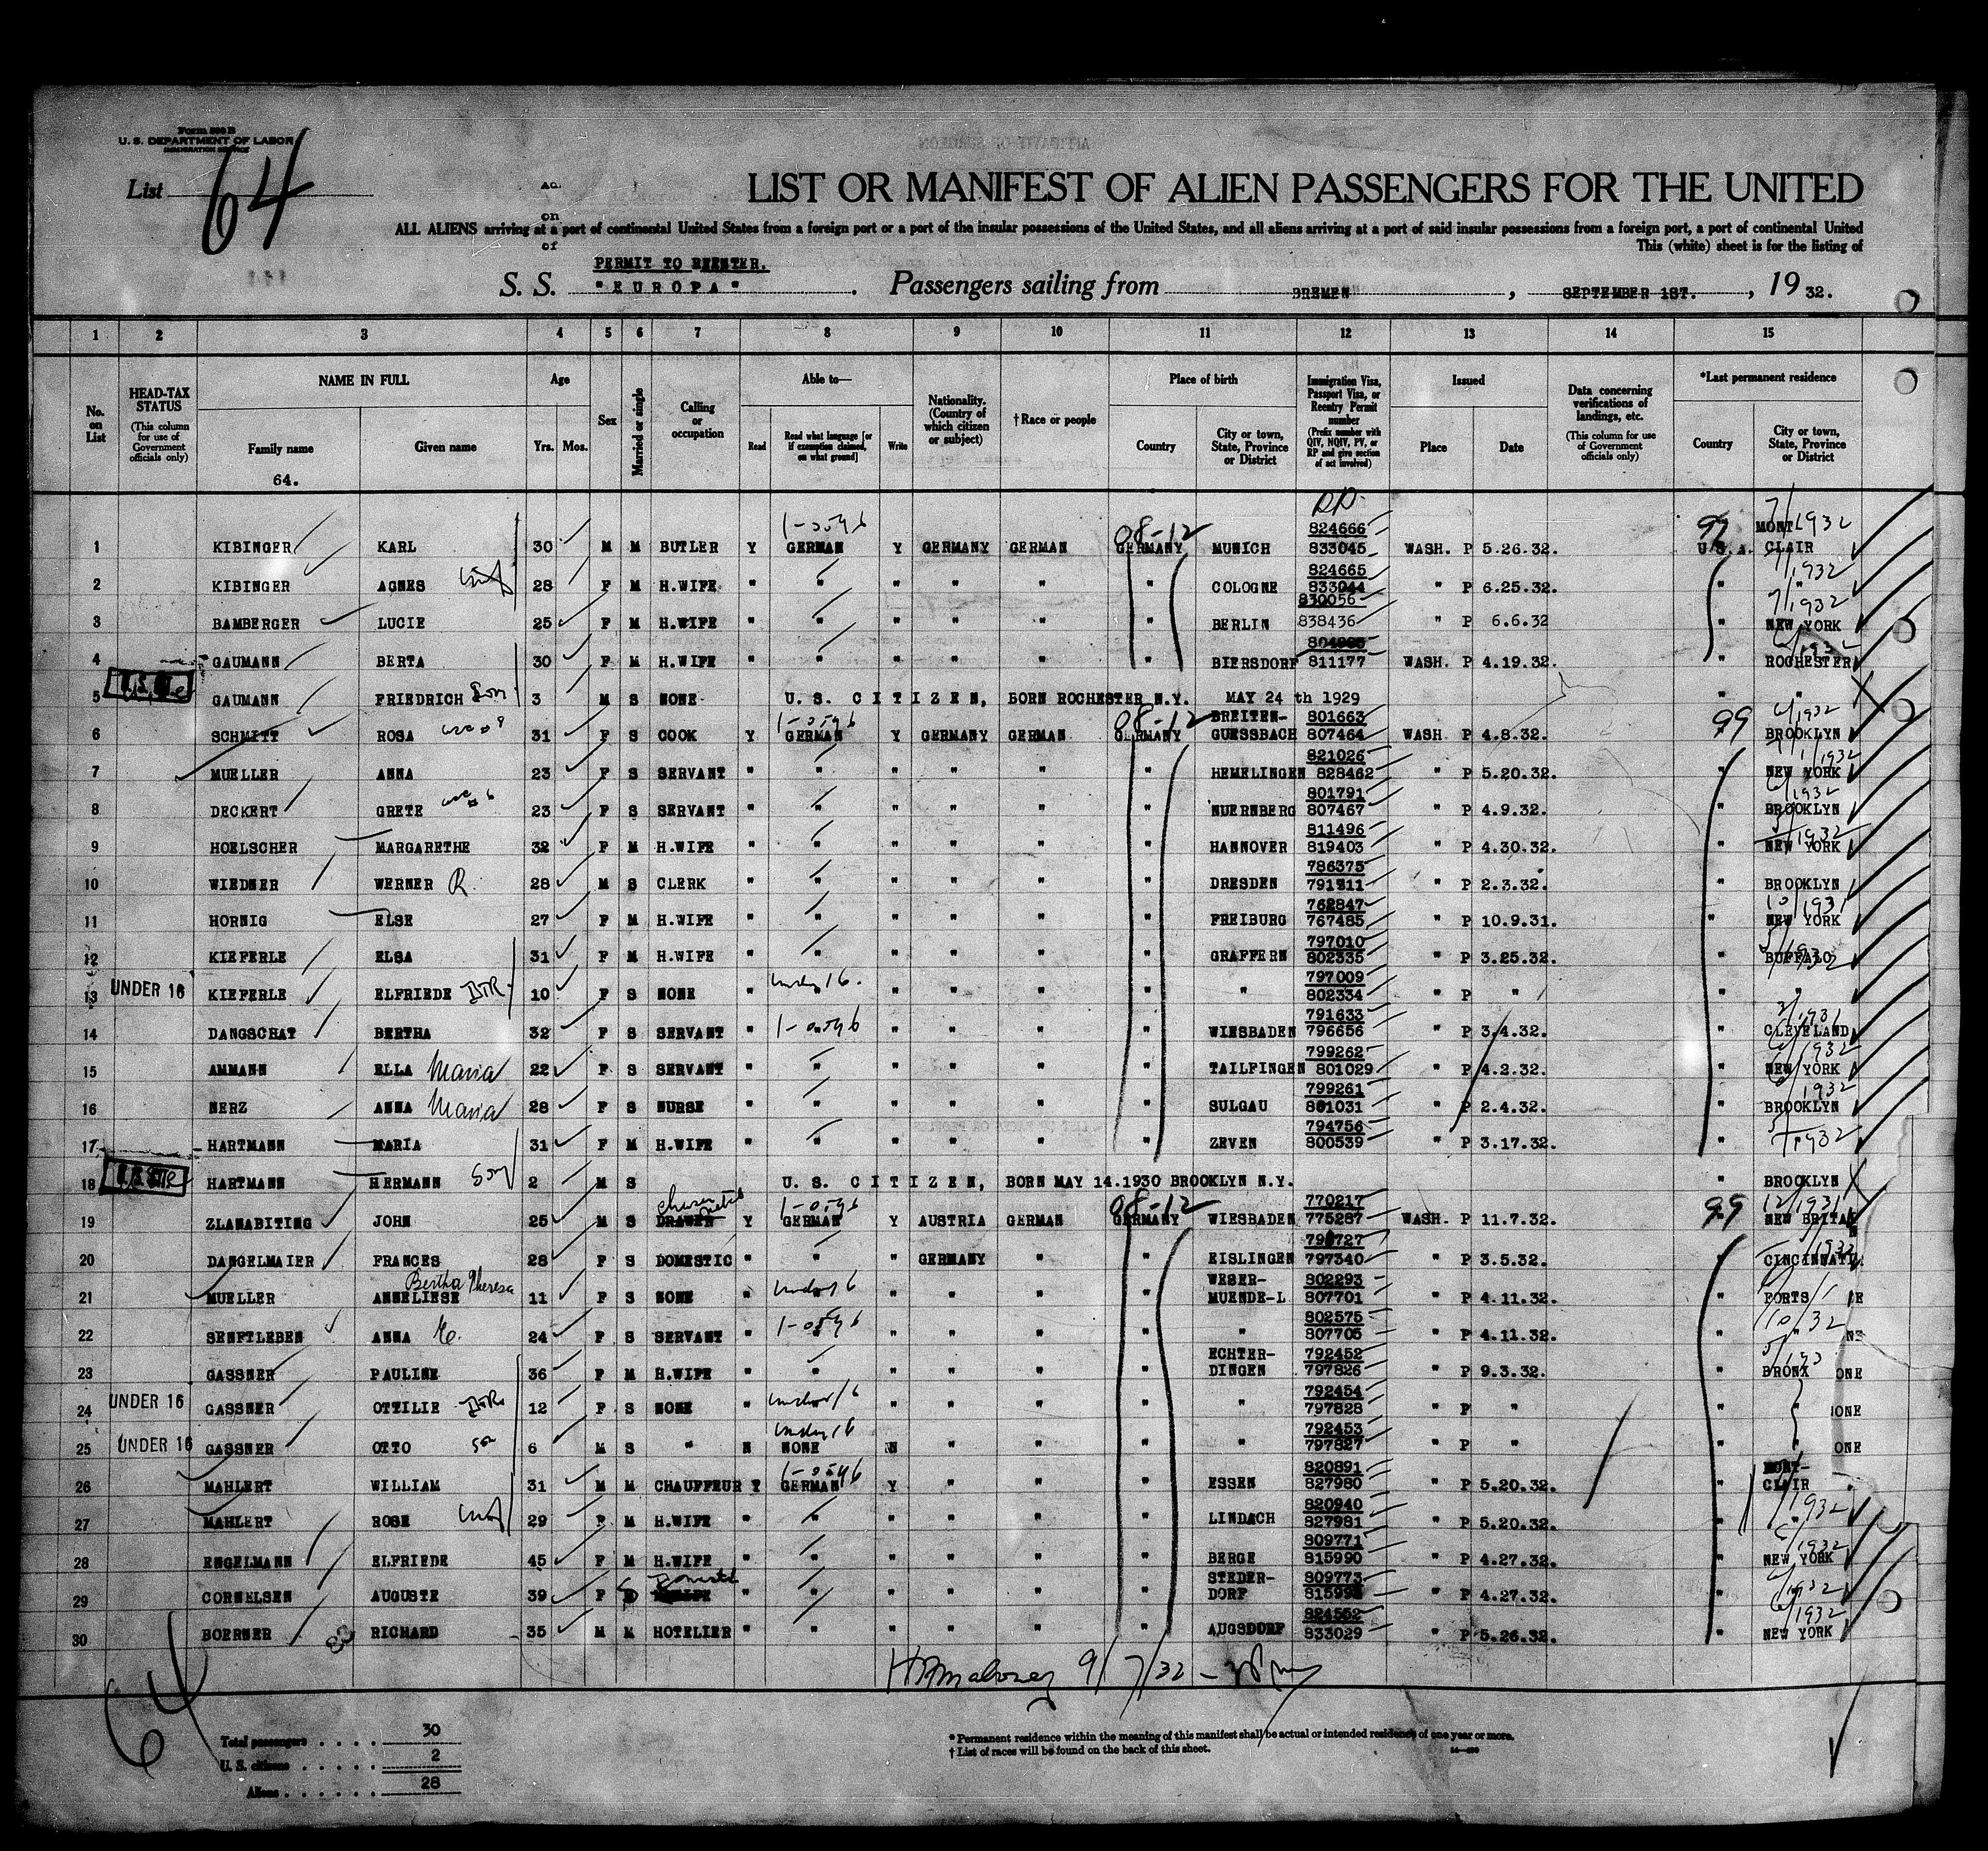 Form 500 B
U. S. DEPARTMENT OF LABOR
IMMIGRATION SERVICE
List 64
LIST OR MANIFEST OF ALIEN PASSENGERS FOR THE UNITED
ALL ALIENS arriving at a port of continental United States from a foreign port or a part of the insular possessions of the United States, and all aliens arriving at a port of said insular possessions from a foreign port, a part of continental United
This (white) sheet is for the listing of
PERMIT TO REENTER.
S. S. "EUROPA". Passengers sailing from BREMEN, SEPTEMBER 1ST., 1932.
1 2 3 4 5 6 7 8 9 10 11 12 13 14 15
No. on List
HEAD-TAX STATUS (This column for use of Government officials only)
NAME IN FULL
Family name
64.
Given name
Age
Yrs. Mos.
Sex
Married or single
Calling or occupation
Able to—
Read
Read what language [or if exemption claimed, on what ground]
Write
Nationality. (Country of which citizen or subject)
†Race or people
Place of birth
Country
City or town, State, Province or District
Immigration Visa, Passport Visa, or Reentry Permit number (Prefix number with QIV, NQIV, PV, or RP and give section of act involved)
Issued
Place
Date
Data concerning verifications of landings, etc. (This column for use of Government officials only)
*Last permanent residence
Country
City or town, State, Province or District
824666 MONT 7/1932
1 KIBINGER KARL 30 M M BUTLER Y GERMAN Y GERMANY GERMAN GERMANY MUNICH 833045 WASH. P 5.26.32. U.S.A. CLAIR
824665
2 KIBINGER AGNES wife 28 F M H.WIFE " " " " " " COLOGNE 833044 " P 6.25.32. " "
830056
3 BAMBERGER LUCIE 25 F M H.WIFE " " " " " " BERLIN 838436 " P 6.6.32 " NEW YORK
4 GAUMANN BERTA 30 F M H.WIFE " " " " " " BIERSDORF 811177 WASH. P 4.19.32. " ROCHESTER
5 GAUMANN FRIEDRICH Son 3 M S NONE U. S. CITIZEN, BORN ROCHESTER N.Y. MAY 24 th 1929 " "
BREITEN- 801663
6 SCHMITT ROSA 31 F S COOK Y GERMAN Y GERMANY GERMAN GERMANY GUESSBACH 807464 WASH P 4.8.32. 99 BROOKLYN
821026
7 MUELLER ANNA 23 F S SERVANT " " " " " " HEMELINGEN 828462 " P 5.20.32. " NEW YORK
801791
8 DECKERT GRETE 23 F S SERVANT " " " " " " NUERNBERG 807467 " P 4.9.32. " BROOKLYN
811496
9 HOELSCHER MARGARETHE 32 F M H.WIFE " " " " " " HANNOVER 819403 " P 4.30.32. " NEW YORK
786375
10 WIEDNER WERNER R. 28 M S CLERK " " " " " " DRESDEN 791911 " P 2.3.32. " BROOKLYN
762847 10/1931
11 HORNIG ELSE 27 F M H.WIFE " " " " " " FREIBURG 767485 " P 10.9.31. " NEW YORK
797010
12 KIEFERLE ELSA 31 F M H.WIFE " " " " " " GRAFFERN 802335 " P 3.25.32. " BUFFALO
797009
13 UNDER 16 KIEFERLE ELFRIEDE DTR. 10 F S NONE " under 16. " " " " " 802334 " P " " "
791633
14 DANGSCHAT BERTHA 32 F S SERVANT " " " " " " WIESBADEN 796656 " P 3.4.32. " CLEVELAND
799262
15 AMMANN ELLA Maria 22 F S SERVANT " " " " " " TAILFINGEN 801029 " P 4.2.32. " NEW YORK
799261
16 NERZ ANNA Maria 28 F S NURSE " " " " " " SULGAU 801031 " P 2.4.32. " BROOKLYN
794756
17 HARTMANN MARIA 31 F M H.WIFE " " " " " " ZEVEN 800539 " P 3.17.32.
18 HARTMANN HERMANN Son 2 M S U. S. CITIZEN, BORN MAY 14.1930 BROOKLYN N.Y. " BROOKLYN
770217 12/1931
19 ZLANABITING JOHN 25 M S DRAWER Y GERMAN Y AUSTRIA GERMAN GERMANY WIESBADEN 775287 WASH. P 11.7.32. 99 NEW BRITA
20 DANGELMAIER FRANCES 28 F S DOMESTIC " " " GERMANY " " EISLINGEN 797340 " P 3.5.32. " CINCINNATI.
Bertha Theresa WESER- 802293
21 MUELLER ANNELIESE 11 F S NONE " under 16 " " " " MUENDE-L 807701 " P 4.11.32. " PORTS
802575
22 SENFTLEBEN ANNA 24 F S SERVANT " " " " " " " 807705 " P 4.11.32. " "
ECHTER- 792452
23 GASSNER PAULINE 36 F M H.WIFE " " " " " " DINGEN 797826 " P 9.3.32. " BRONX ONE
792454
24 UNDER 16 GASSNER OTTILIE DTR. 12 F S NONE " under 16 " " " " " 797828 " P " " ONE
792453
25 UNDER 16 GASSNER OTTO son 6 M S " N NONE under 16 N " " " " 797827 " P " " ONE
820891 MONT-
26 MAHLERT WILLIAM 31 M M CHAUFFEUR Y GERMAN Y " " " ESSEN 827980 " P 5.20.32. " CLAIR
820940
27 MAHLERT ROSE wife 29 F M H.WIFE " " " " " " LINDACH 827981 " P 5.20.32. " "
809771
28 ENGELMANN ELFRIEDE 45 F M H.WIFE " " " " " " BERGE 815990 " P 4.27.32. " NEW YORK
STEDER- 809773
29 CORNELSEN AUGUSTE 39 F Domestic " " " " " " DORF " P 4.27.32. "
824552
30 BOERNER RICHARD 35 M M HOTELIER " " " " " " AUGSDORF 833029 " P 5.26.32. " NEW YORK
64 9/7/32
Total passengers . . . . 30
U. S. citizens . . . . . 2
Aliens . . . . . . 28
* Permanent residence within the meaning of this manifest shall be actual or intended residence of one year or more.
† List of races will be found on the back of this sheet.